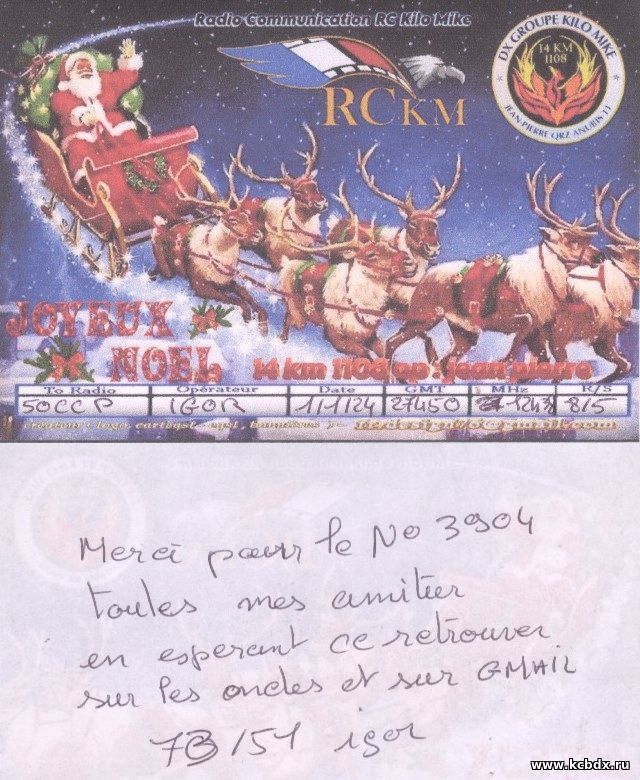 Radio Communication RC Kilo Mike
DX GROUPE KILO MIKE
14 KM
1108
JEAN-PIERRE QRZ ANUBIS 13
RCKM
JOYEUX
NOEL
14 km 1108 op : jean pierre
To Radio Opérateur Date GMT MHz R/S
50CCP IGOR 1/1/24 27450 1243 8/5
Merci pour le No 3904
toutes mes amitier
en esperant ce retrouver
sur les ondes et sur GMAIL
73/51 igor
www.kcbdx.ru